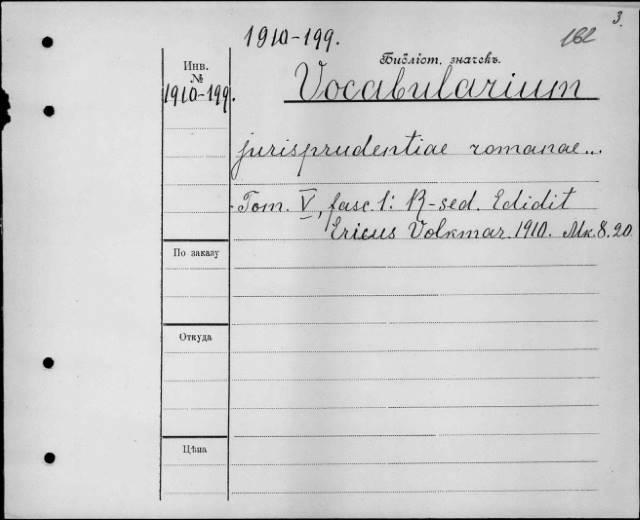 3.
1910-199.
182
Инв.
№
Библіот. значекъ.
1910-199.
Vocabularium
jurisprudentiae romanae...
Tom. V, fasc. 1: R-sed. Edidit
Ericus Volkmar. 1910. Mk. 8.20.
По заказу
Откуда
Цѣна